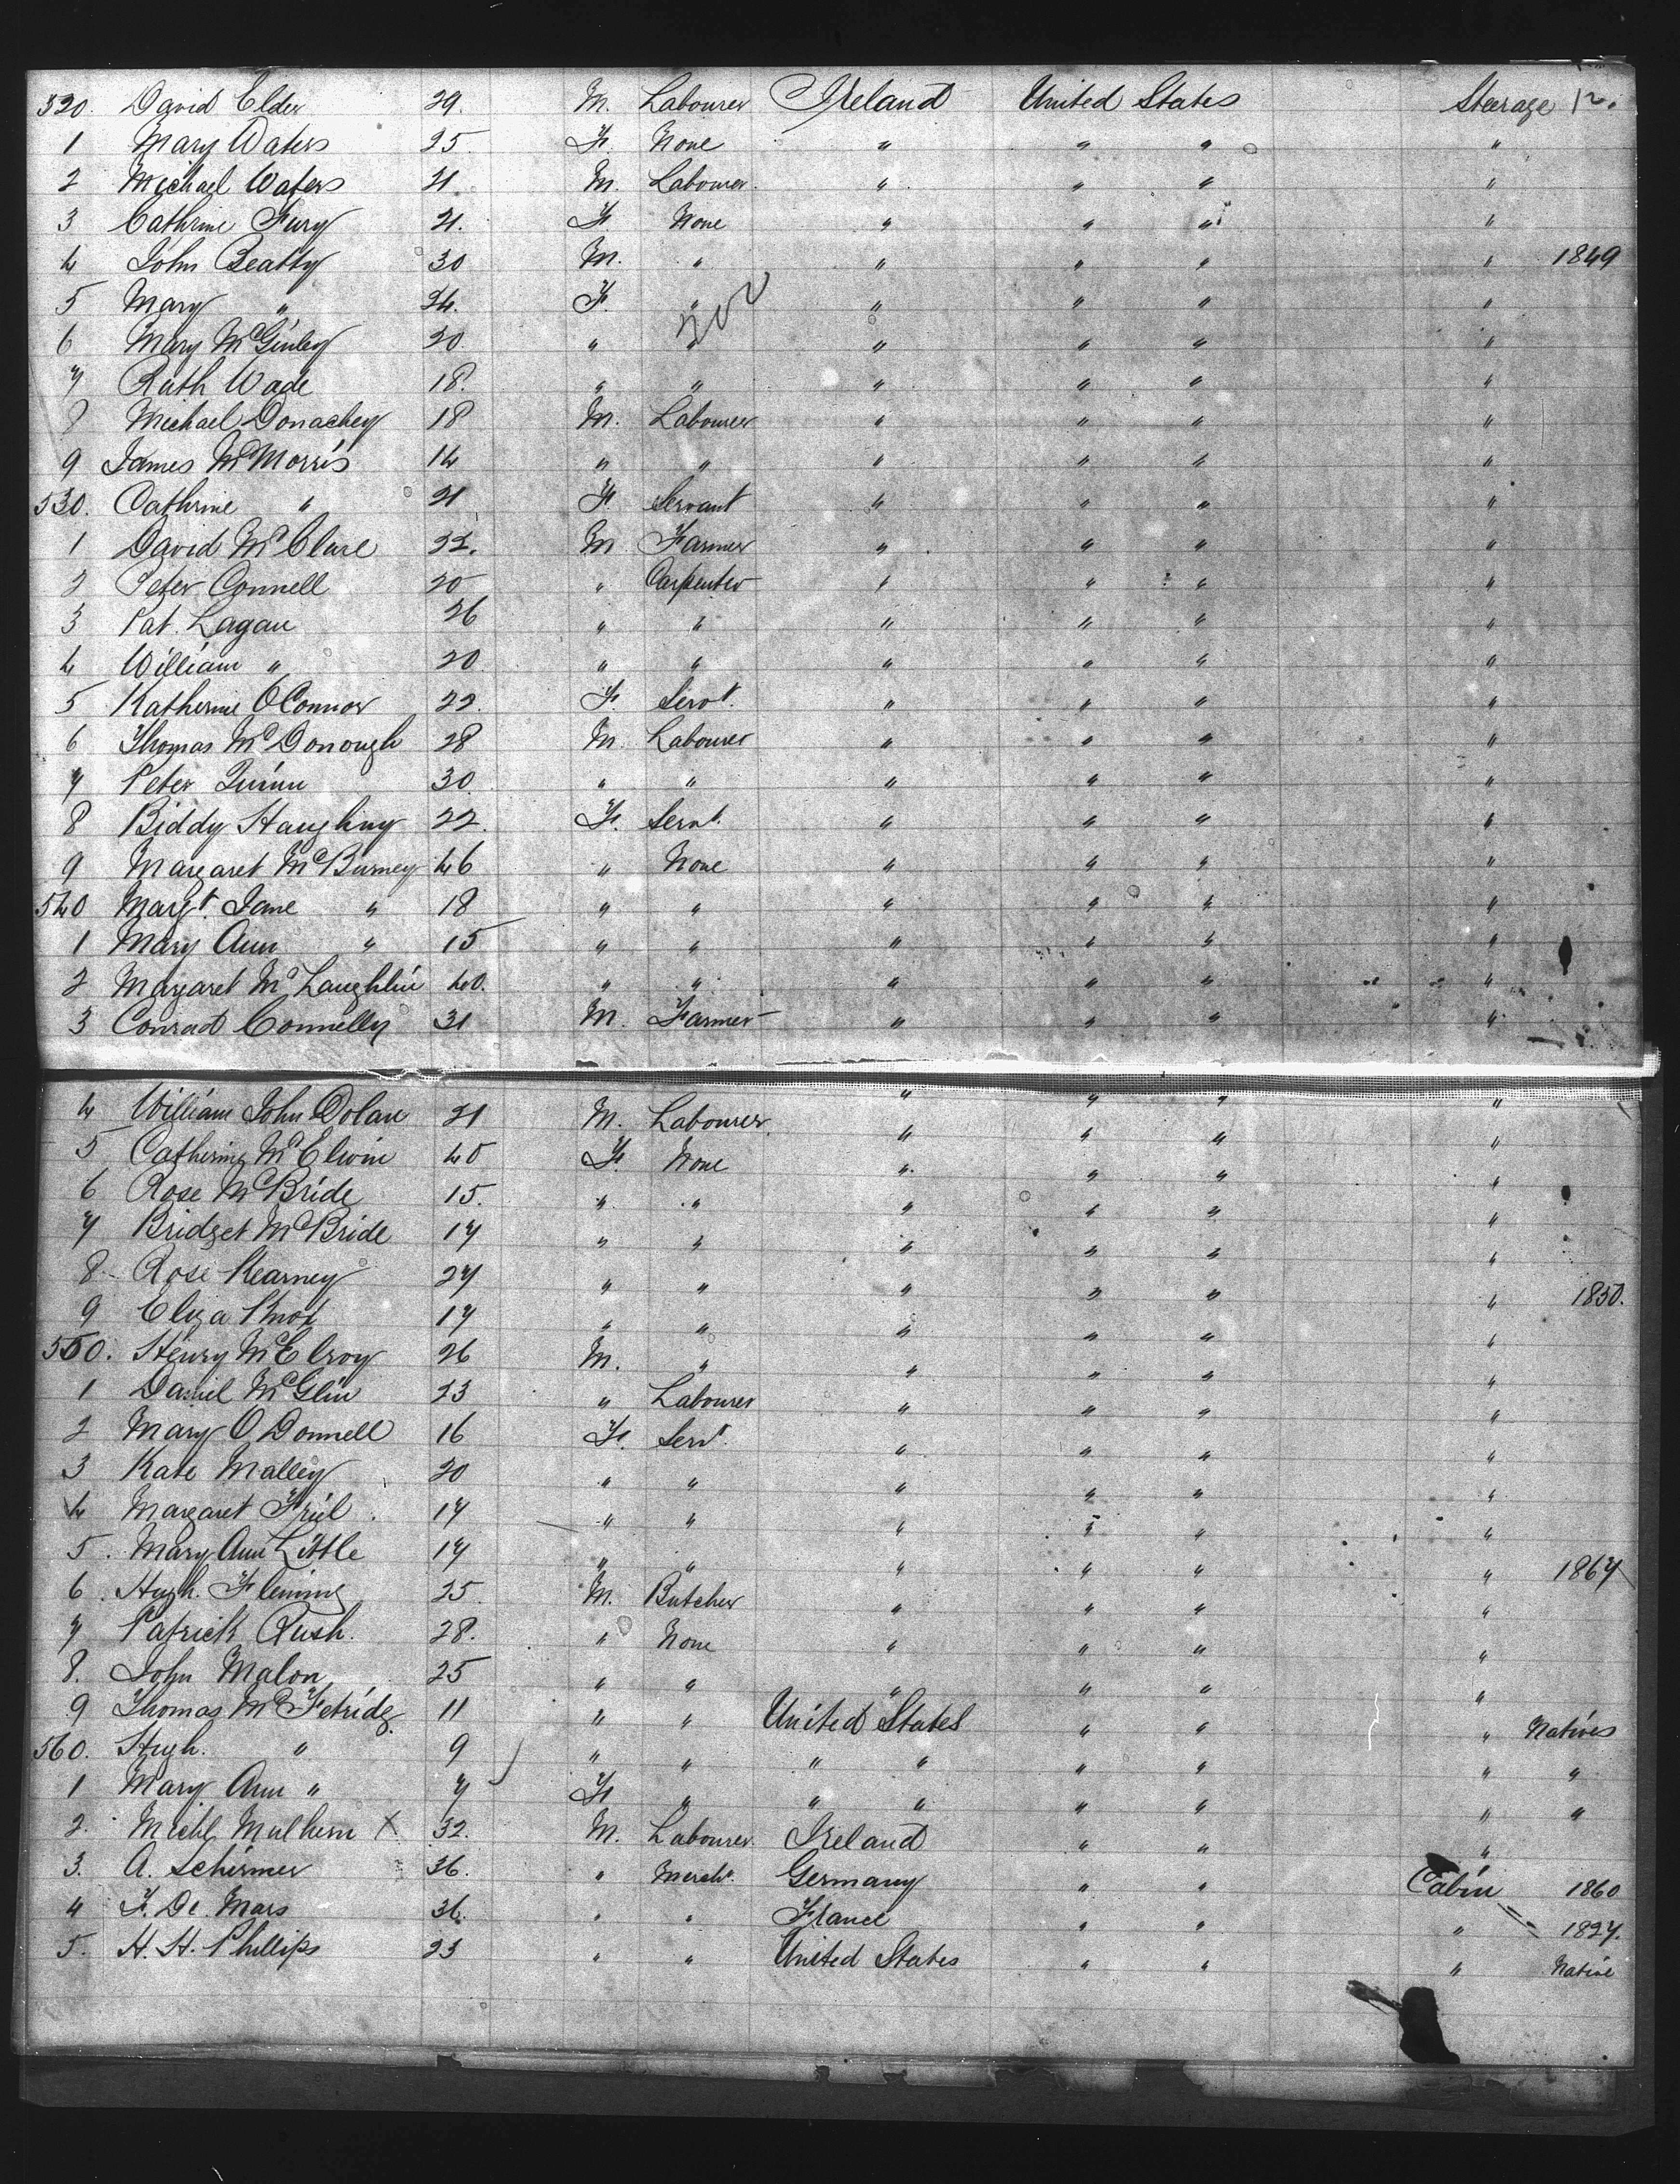 520. David Elder 29. M. Labourer Ireland United States Steerage 12.
1 Mary Waters 25. F. None " " " "
2 Michael Waters 21. M. Labourer. " " " "
3 Cathrine Fury 21. F. None " " " "
4 John Beatty 30 M. " " " " " 1849
5 Mary " 24. F. " " " " "
6 Mary McGinley 20. " " " " " "
7 Ruth Wade 18. " " " " " "
8 Michael Donachey 18 M. Labourer " " " "
9 James McMorris 14 " " " " " "
530. Cathrine " 21 F. Servant " " " "
1 David McClure 22. M Farmer " " " "
2 Peter Connell 20 " Carpenter " " " "
3 Pat. Lagan 26 " " " " " "
4 William " 20 " " " " " "
5 Katherine OConnor 22. F. Servt. " " " "
6 Thomas McDonough 28 M. Labourer " " " "
7 Peter Quinn 30. " " " " " "
8 Biddy Haughiny 22. F. Servt. " " " "
9 Margaret McBurney 46 " None " " " "
540 Margt. Jane " 18 " " " " " "
1 Mary Ann " 15 " " " " " "
2 Margaret McLaughlin 40. " " " " " "
3 Conrad Connelly 31 M. Farmer " " " "
4 William John Dolan 21 M. Labourer. " " " "
5 Catherine McElwin 40 F. None " " " "
6 Rose McBride 15. " " " " " "
7 Bridget McBride 17 " " " " " "
8 Rose Kearney 27 " " " " " " 1850.
9 Eliza Knox 17 " " " " " "
550. Henry McElroy 26 M. " " " " "
1 Daniel McGlin 23 " Labourer " " " "
2 Mary ODonnell 16 F. Servt. " " " "
3 Kate Malley 20 " " " " " "
4 Margaret Friel 17 " " " " " "
5. Mary Ann Little 17 " " " " " " 1867
6. Hugh. Fleming 25. M. Butcher " " " "
7 Patrick Rush. 28. " None " " " "
8. John Malon 25 " " " " " "
9 Thomas McFetridg. 11 " " United States " " " Natives
560. Hugh. " 9 " " " " " " " "
1 Mary Ann " 7 F. " " " " " " "
2. Michl Mulhern X 32. M. Labourer. Ireland " " "
3. A. Schirmer 36. " Mercht. Germany " " Cabin 1860
4 F. De. Mars 36. " " France " " " 1827.
5. H. H. Phillips 23 " " United States " " " Native